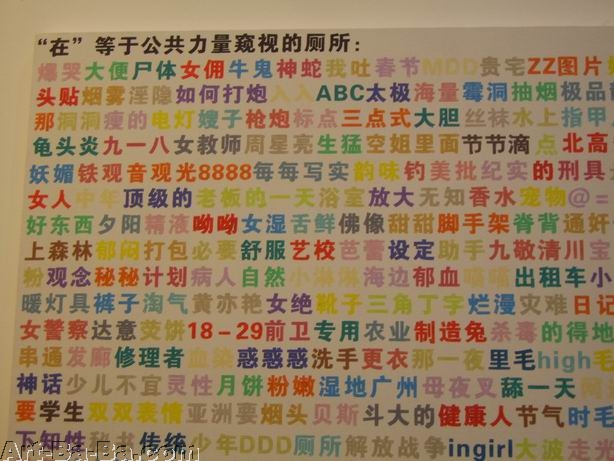 “在”等于公共力量窥视的厕所：
爆哭大便尸体女佣牛鬼神蛇我吐春节MDD贵宅ZZ图片
头贴烟雾淫隐如何打炮入入ABC太极海量霉洞抽烟极品
那洞洞瘦的电灯嫂子枪炮标点三点式大胆丝袜水上指甲
龟头炎九一八女教师周星亮生猛空姐里面节节滴点北高
妖媚铁观音观光8888每每写实韵味钓美批纪实的刑具
女人中年顶级的老板的一天浴室放大无知香水宠物@=
好东西夕阳精液呦呦女湿舌鲜佛像甜甜脚手架脊背通奸
上森林郁闷打包必要舒服艺校芭蕾设定助手九敬清川宝
粉观念秘秘计划病人自然小淋淋海边郁血嘻嘻出租车小
暖灯具裤子淘气黄亦艳女绝靴子三角丁字烂漫灾难日记
女警察达意茭饼18－29前卫专用农业制造兔杀毒的得地
串通发廊修理者血染惑惑惑洗手更衣那一夜里毛high毛
神话少儿不宜灵性月饼粉嫩湿地广州母夜叉舔一天网
要学生双双表情亚洲要烟头贝斯斗大的健康人节气时毛
下知性秘书传统少年DDD厕所解放战争ingirl大波走光
Art-Ba-Ba.com
Art-Ba-Ba.com